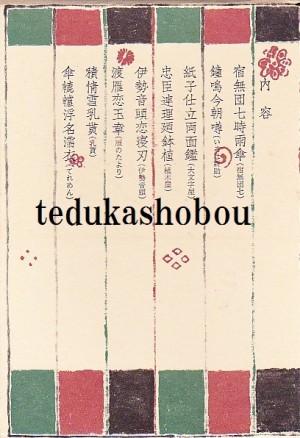 内容
宿無団七時雨傘(宿無団七)
鐘鳴今朝噂(い
助)
紙子仕立両面鑑(大文字屋)
忠臣連理廼鉢植(植木屋)
伊勢音頭恋寝刃(伊勢音頭)
渡雁恋玉章(雁のたより)
積情雪乳貰(乳貰)
傘轆轤浮名濡衣(てれめん)
tedukashobou